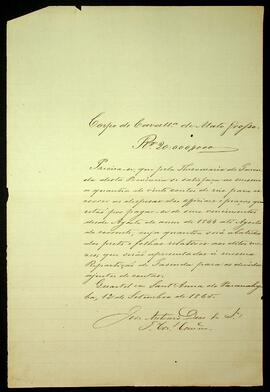 Corpo de Cavall.ª de Mato Grosso.
Rs. 20.000$000
Precisa-se que pela Thesouraria de Fazen
da desta Provincia se satisfaça ao mesmo
a quantia de vinte contos de reis para se
occorrer as despezas dos officiaes e praças que
estão por pagar-se de seus vencimentos
desde Agosto do anno de 1864 até Agosto
do corrente, cuja quantia será abatida
dos prets e folhas relativos aos ditos me
zes, que serão apresentados á mesma
Repartição de Fazenda para os devidos
ajustes de contas.
Quartel em Sant'Anna do Parnahy
ba, 12 de Setembro de 1865.
José Antonio Dias da S.ª
T. Cor.ˡ Comm.ᵉ